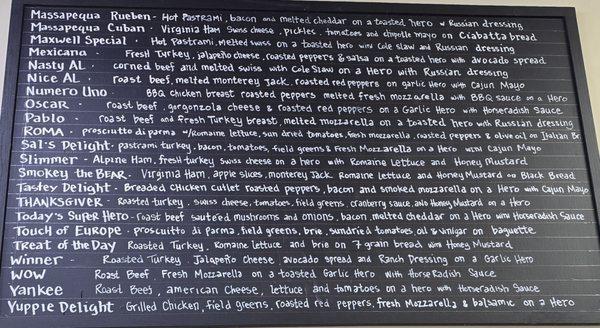 Massapequa Rueben - Hot Pastrami, bacon and melted cheddar on a toasted hero w Russian dressing
Massapequa Cuban - Virginia Ham Swiss cheese, pickles, tomatoes and chipotle mayo on Ciabatta bread
Maxwell Special - Hot Pastrami, melted swiss on a toasted hero with Cole slaw and Russian dressing
Mexicana - Fresh Turkey, jalapeño cheese, roasted peppers & salsa on a toasted hero with avocado spread
Nasty AL - corned beef and melted swiss with Cole Slaw on a Hero with Russian dressing
Nice AL - roast beef, melted monterey Jack, roasted red peppers on garlic Hero with Cajun Mayo
Numero Uno - BBQ chicken breast roasted peppers melted fresh mozzarella with BBQ sauce on a Hero
Oscar - roast beef, gorgonzola cheese & roasted red peppers on a Garlic Hero with Horseradish Sauce
Pablo - roast beef and fresh Turkey breast, melted mozzarella on a toasted Hero with Russian dressing
ROMA - prosciutto di parma w/Romaine lettuce, sun dried tomatoes, fresh mozzarella, roasted peppers & olive oil on Italian Br
Sal's Delight - pastrami turkey, bacon, tomatoes, field greens & Fresh Mozzarella on a Hero with Cajun Mayo
Slimmer - Alpine Ham, fresh turkey, swiss cheese on a hero with Romaine Lettuce and Honey Mustard
Smokey the BEAR - Virginia Ham, apple slices, monterey Jack, Romaine lettuce and Honey Mustard on Black Bread
Tastey Delight - Breaded Chicken cutlet roasted peppers, bacon and smoked mozzarella on a Hero with Cajun Mayo
THANKSGIVER - Roasted turkey, swiss cheese, tomatoes, field greens, cranberry sauce, and Honey Mustard on a Hero
Today's Super Hero - roast beef sautered mushrooms and onions, bacon, melted cheddar on a Hero with Horseradish Sauce
Touch of Europe - prosciutto di parma, field greens, brie, sundried tomatoes, oil & vinigar on baguette
Treat of the Day Roasted Turkey, Romaine lettuce and brie on 7 grain bread with Honey Mustard
Winner - Roasted Turkey, Jalapeño Cheese, avocado spread and Ranch Dressing on a Garlic Hero
WOW Roast Beef, Fresh Mozzarella on a toasted Garlic Hero with Horse Radish Sauce
Yankee Roast Beef, american Cheese, lettuce and tomatoes on a hero with Horseradish Sauce
Yuppie Delight Grilled Chicken, field greens, roasted red peppers, fresh Mozzarella & balsamic on a Hero